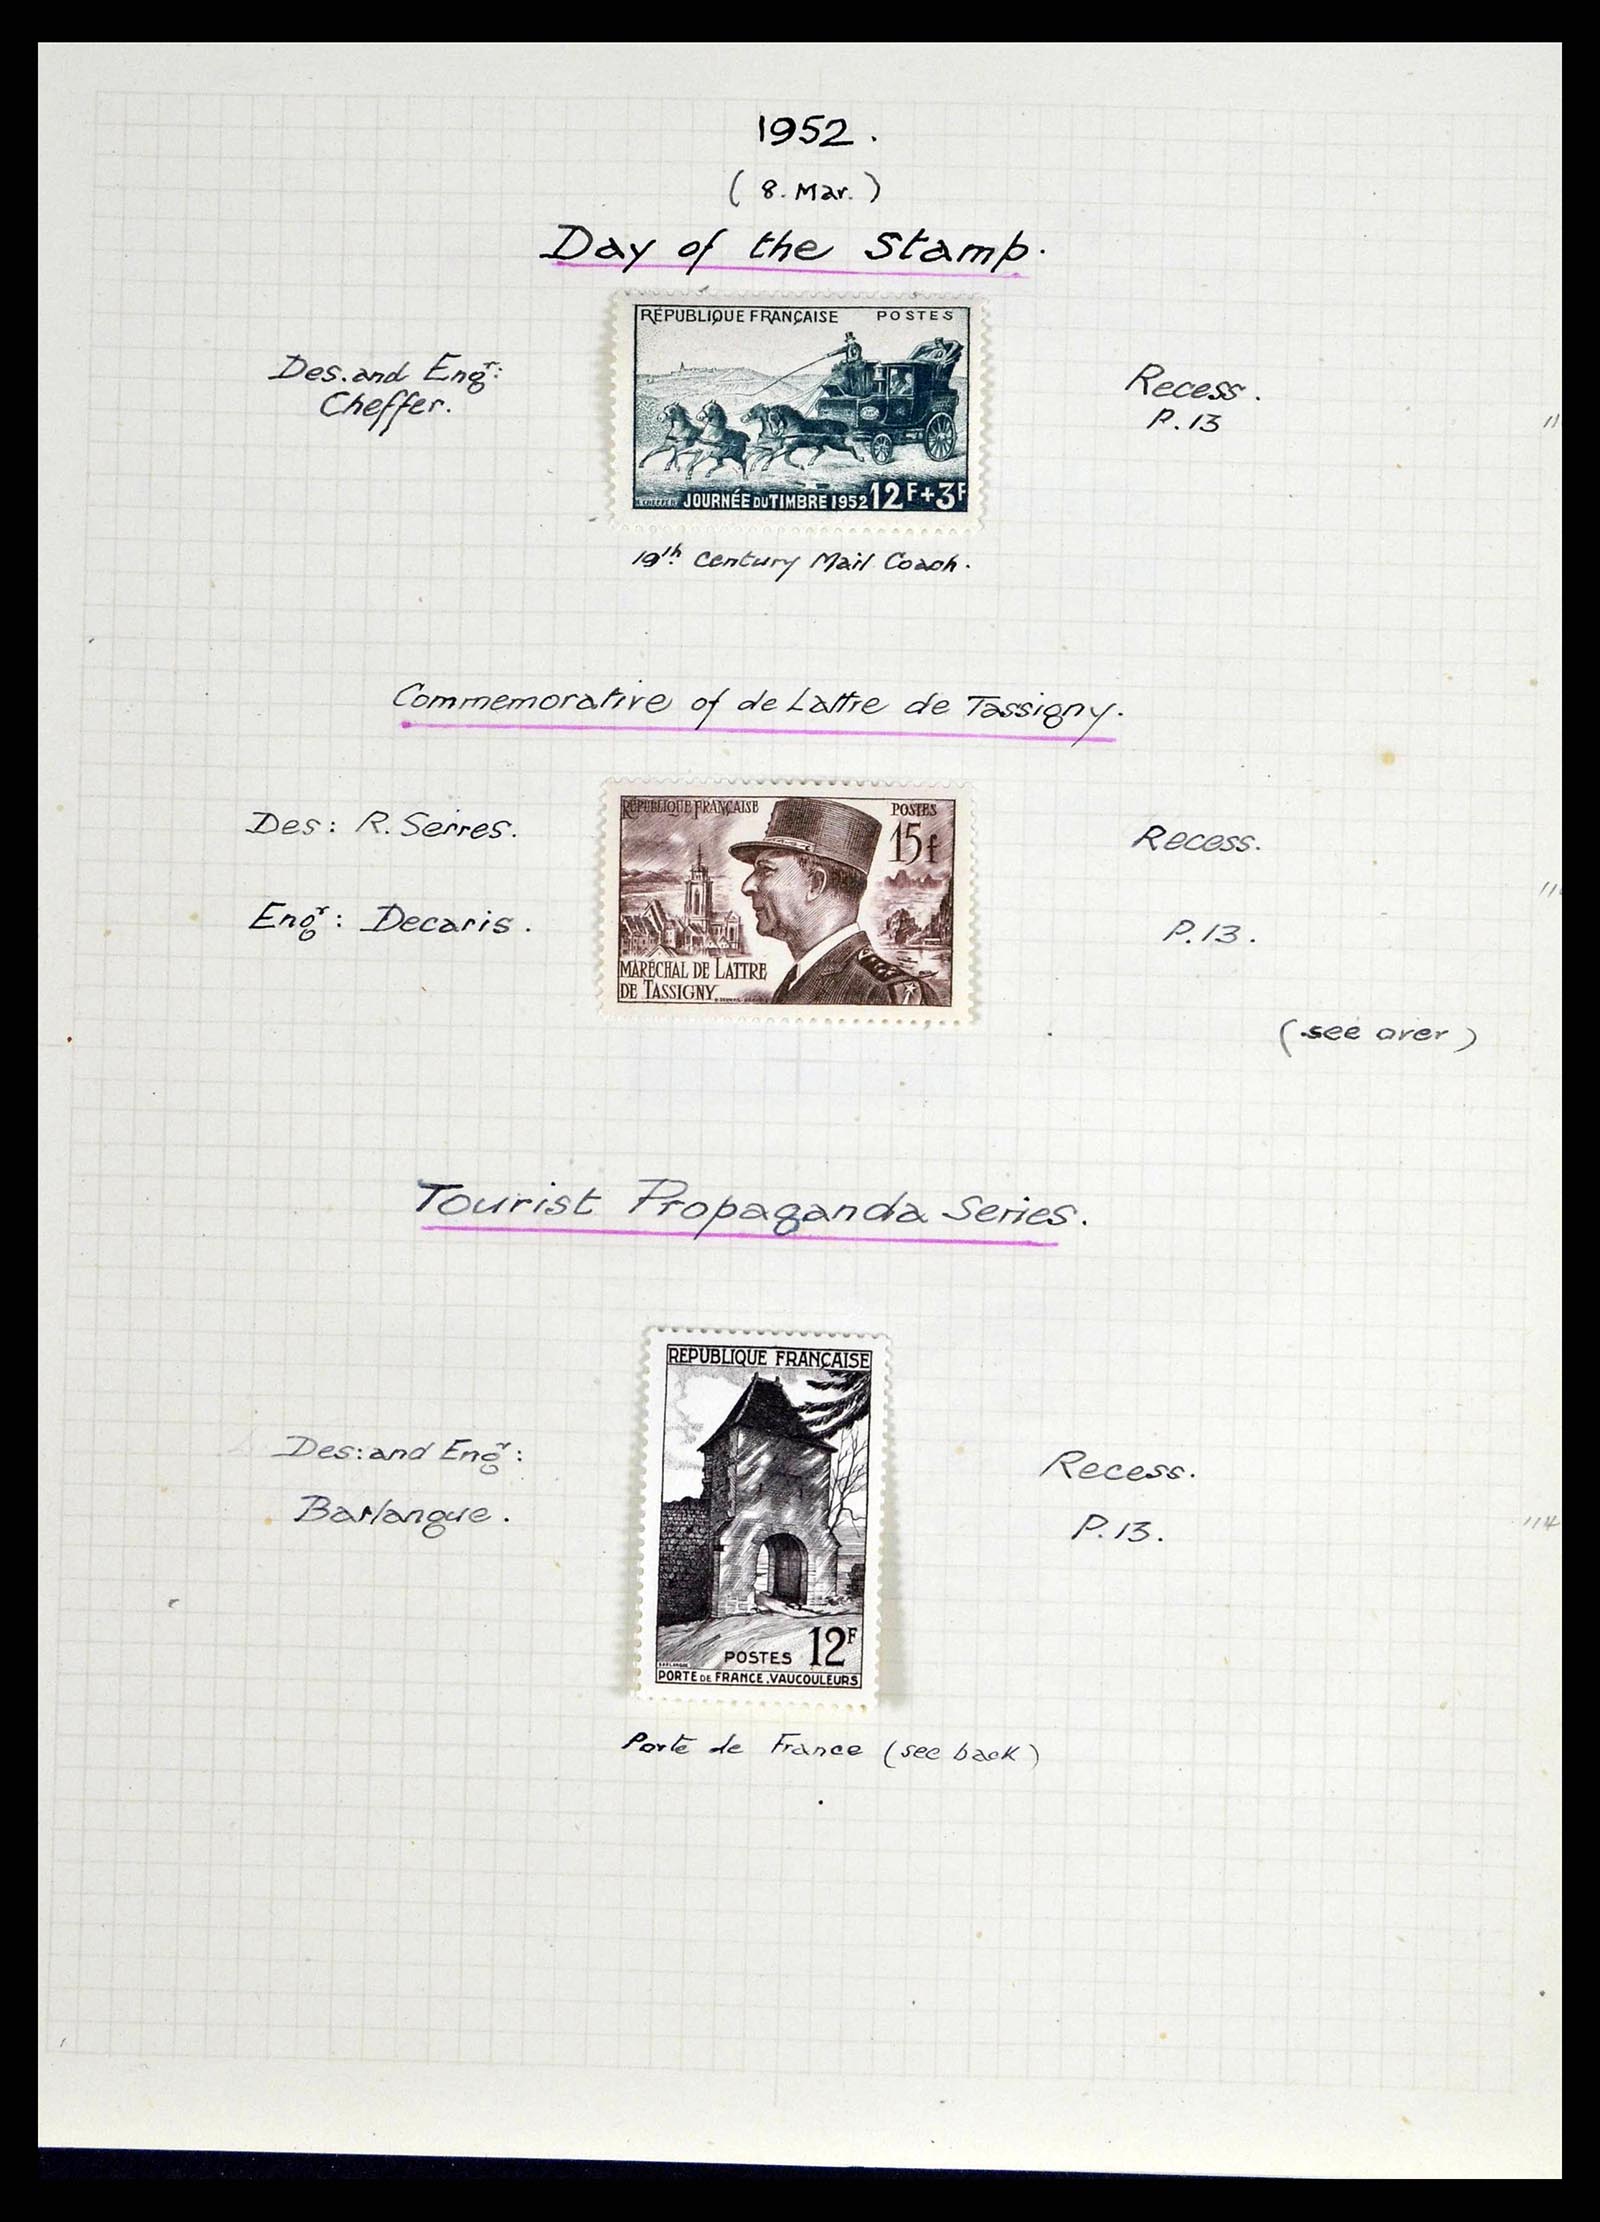 1952.
( 8. Mar. )
Day of the Stamp.
RÉPUBLIQUE FRANÇAISE POSTES
JOURNÉE DU TIMBRE 1952 12F+3F
Des. and Engr:
Cheffer.
Recess.
P.13
19th Century Mail Coach.
Commemorative of de Lattre de Tassigny.
RÉPUBLIQUE FRANÇAISE POSTES
15f
MARÉCHAL DE LATTRE
DE TASSIGNY
Des: R. Serres.
Engr: Decaris.
Recess.
P.13.
(see over)
Tourist Propaganda Series.
REPUBLIQUE FRANÇAISE
POSTES 12F
PORTE DE FRANCE.VAUCOULEURS
Des: and Engr:
Barlangue.
Recess.
P.13.
114
Porte de France (see back)